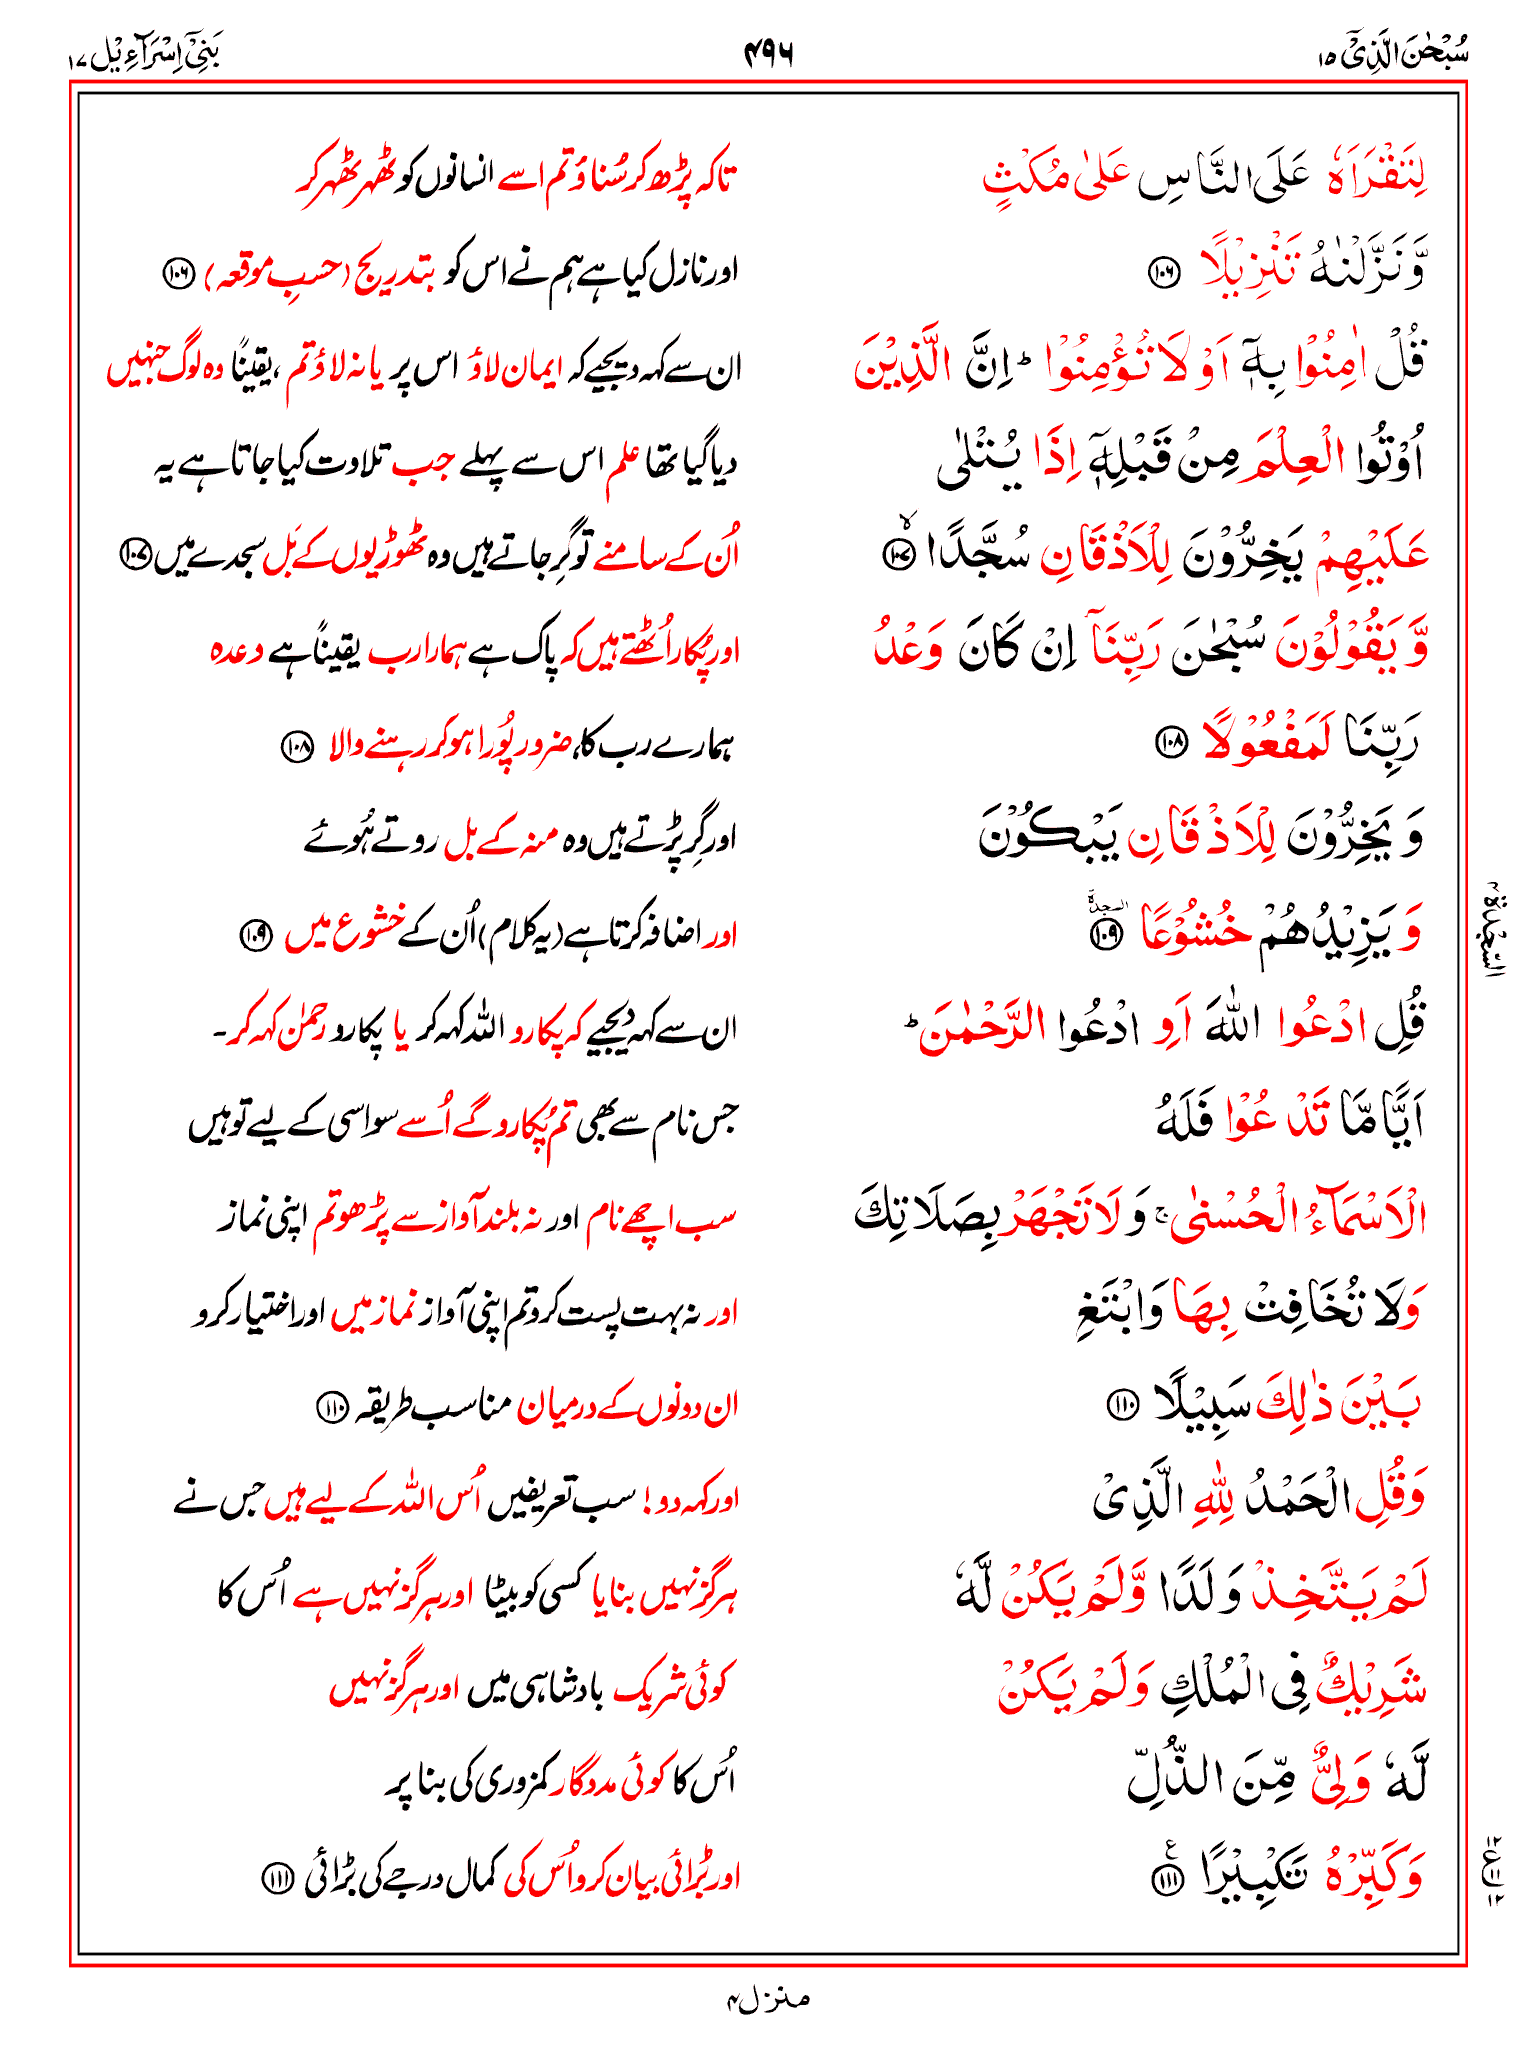 سُبْحٰنَ الَّذِیْۤ ۱۵
۴۹۶
بَنِیْۤ اِسْرَآءِیْل ۱۷
لِتَقْرَاَهٗ عَلَی النَّاسِ عَلٰی مُكْثٍ
تاکہ پڑھ کر سُناؤ تم اسے انسانوں کو ٹھہر ٹھہر کر
وَّنَزَّلْنٰهُ تَنْزِیْلًا ۱۰۶
اور نازل کیا ہے ہم نے اس کو بتدریج (حسبِ موقعہ) ۱۰۶
قُلْ اٰمِنُوْا بِهٖۤ اَوْ لَا تُؤْمِنُوْا ؕ اِنَّ الَّذِیْنَ
ان سے کہہ دیجیے کہ ایمان لاؤ اس پر یا نہ لاؤ تم ، یقیناً وہ لوگ جنہیں
اُوْتُوا الْعِلْمَ مِنْ قَبْلِهٖۤ اِذَا یُتْلٰی
دیا گیا تھا علم اس سے پہلے جب تلاوت کیا جاتا ہے یہ
عَلَیْهِمْ یَخِرُّوْنَ لِلْاَذْقَانِ سُجَّدًا ۱۰۷ ۙ
اُن کے سامنے تو گِر جاتے ہیں وہ ٹھوڑیوں کے بَل سجدے میں ۱۰۷
وَّ یَقُوْلُوْنَ سُبْحٰنَ رَبِّنَاۤ اِنْ كَانَ وَعْدُ
اور پُکار اُٹھتے ہیں کہ پاک ہے ہمارا رب یقیناً ہے وعدہ
رَبِّنَا لَمَفْعُوْلًا ۱۰۸
ہمارے رب کا، ضرور پُورا ہو کر رہنے والا ۱۰۸
وَ یَخِرُّوْنَ لِلْاَذْقَانِ یَبْكُوْنَ
اور گِر پڑتے ہیں وہ منہ کے بل روتے ہُوئے
وَ یَزِیْدُهُمْ خُشُوْعًا ۱۰۹ السجدۃ
اور اضافہ کرتا ہے (یہ کلام) اُن کے خشوع میں ۱۰۹
السَّجْدَة ۴
قُلِ ادْعُوا اللّٰهَ اَوِ ادْعُوا الرَّحْمٰنَ ؕ
ان سے کہہ دیجیے کہ پکارو اللہ کہہ کر یا پکارو رحمٰن کہہ کر۔
اَیًّا مَّا تَدْعُوْا فَلَهُ
جس نام سے بھی تم پُکارو گے اُسے سو اسی کے لیے تو ہیں
الْاَسْمَآءُ الْحُسْنٰی ۚ وَ لَا تَجْهَرْ بِصَلَاتِكَ
سب اچھے نام اور نہ بلند آواز سے پڑھو تم اپنی نماز
وَلَا تُخَافِتْ بِهَا وَابْتَغِ
اور نہ بہت پست کرو تم اپنی آواز نماز میں اور اختیار کرو
بَیْنَ ذٰلِكَ سَبِیْلًا ۱۱۰
ان دونوں کے درمیان مناسب طریقہ ۱۱۰
وَقُلِ الْحَمْدُ لِلّٰهِ الَّذِیْ
اور کہہ دو! سب تعریفیں اُس اللہ کے لیے ہیں جس نے
لَمْ یَتَّخِذْ وَلَدًا وَّلَمْ یَكُنْ لَّهٗ
ہرگز نہیں بنایا کسی کو بیٹا اور ہرگز نہیں ہے اُس کا
شَرِیْكٌ فِی الْمُلْكِ وَلَمْ یَكُنْ
کوئی شریک بادشاہی میں اور ہرگز نہیں
لَّهٗ وَلِیٌّ مِّنَ الذُّلِّ
اُس کا کوئی مددگار کمزوری کی بنا پر
وَكَبِّرْهُ تَكْبِیْرًا ۱۱۱ ع
اور بُڑائی بیان کرو اُس کی کمال درجے کی بڑائی ۱۱۱
۱۲ ع ۱۱ ۱۲
منزل ۴